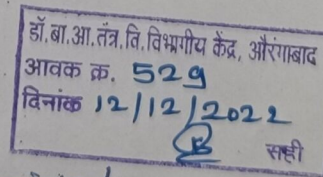 डॉ.बा.आ.तंत्र.वि.विभागीय केंद्र, औरंगाबाद
आवक क्र. 529
दिनांक 12/12/2022
सही